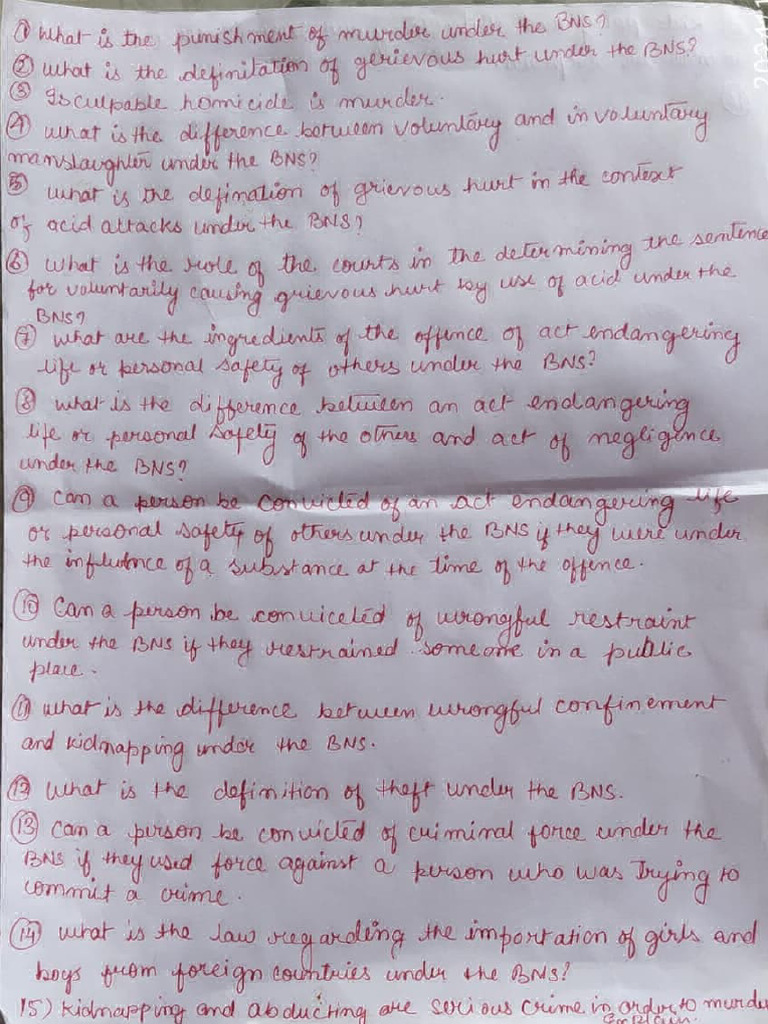 ① What is the punishment of murder under the BNS?
② what is the definitation of gerievous hurt under the BNS?
③ Is culpable homicide is murder.
④ what is the difference between voluntary and involuntary
manslaughter under the BNS?
⑤ what is the defination of grievous hurt in the context
of acid attacks under the BNS?
⑥ what is the role of the courts in the determining the sentence
for voluntarily causing grievous hurt by use of acid under the
BNS?
⑦ what are the ingredients of the offence of act endangering
life or personal safety of others under the BNS?
⑧ what is the difference between an act endangering
life or personal safety of the others and act of negligence
under the BNS?
⑨ Can a person be convicted of an act endangering life
or personal safety of others under the BNS if they were under
the influence of a substance at the time of the offence.
⑩ Can a person be conviceted of wrongful restraint
under the BNS if they restrained someone in a public
place.
⑪ what is the difference between wrongful confinement
and kidnapping under the BNS.
⑫ what is the definition of theft under the BNS.
⑬ Can a person be convicted of criminal force under the
BNS if they used force against a person who was Trying to
commit a crime.
⑭ what is the law regarding the importation of girls and
boys from foreign countries under the BNS?
15) kidnapping and abducting are serious crime in order to murder
Explain.